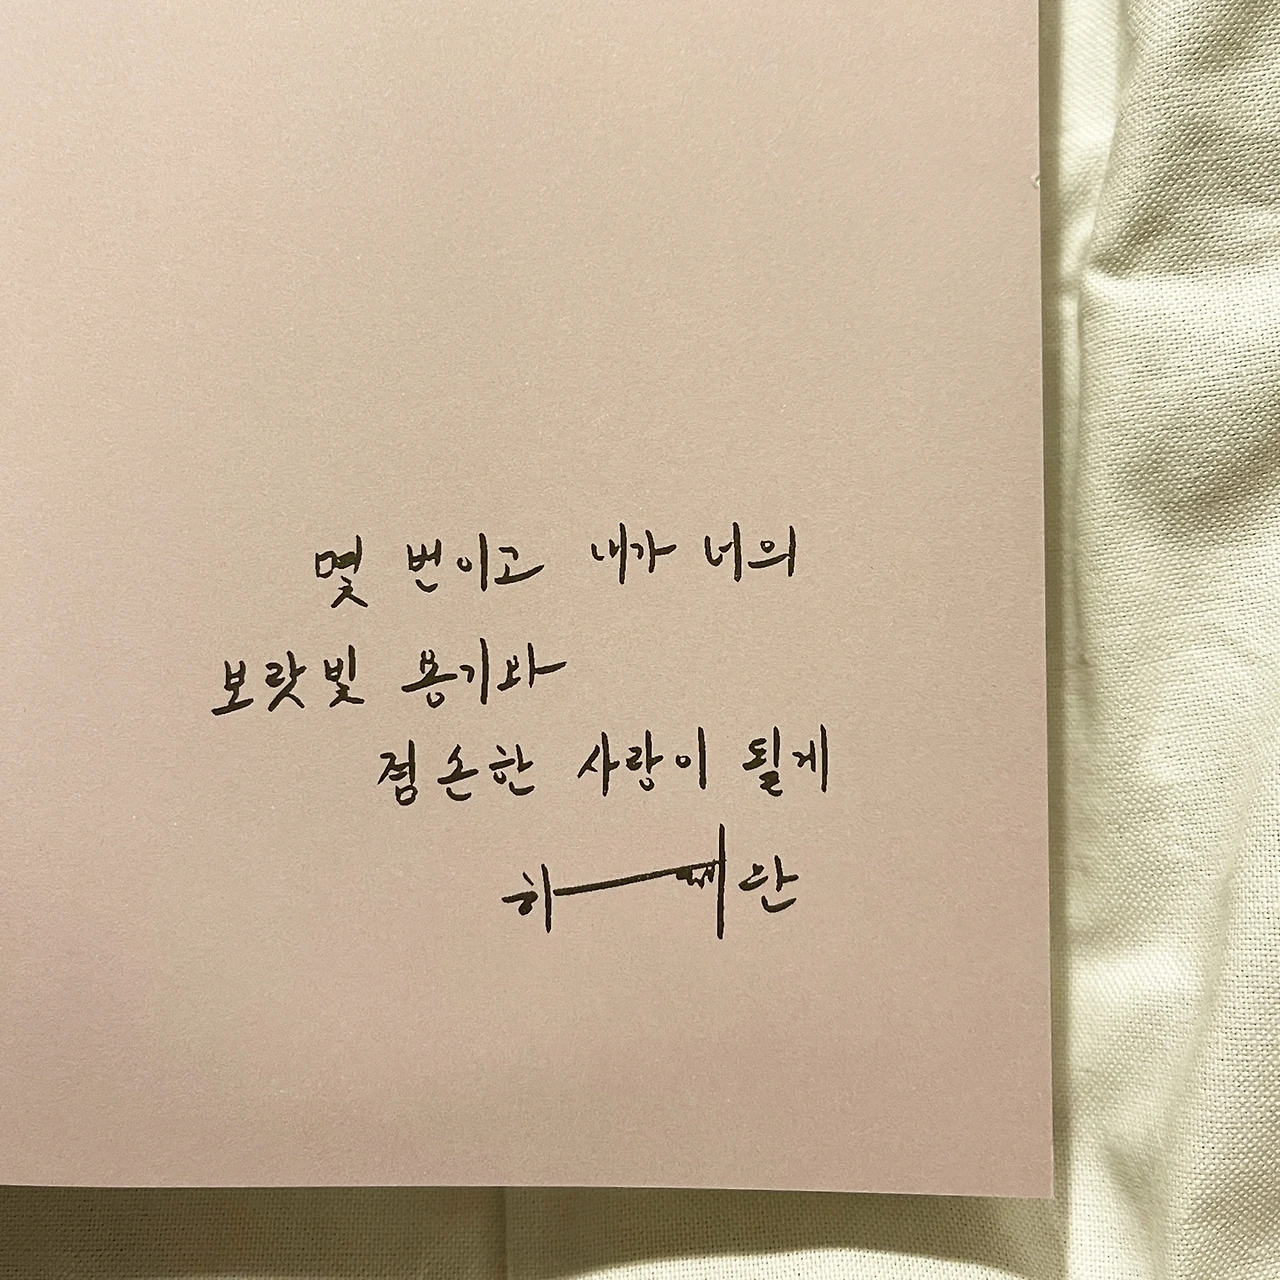 몇 번이고 내가 너의
보랏빛 용기와
겸손한 사랑이 될게
하태완